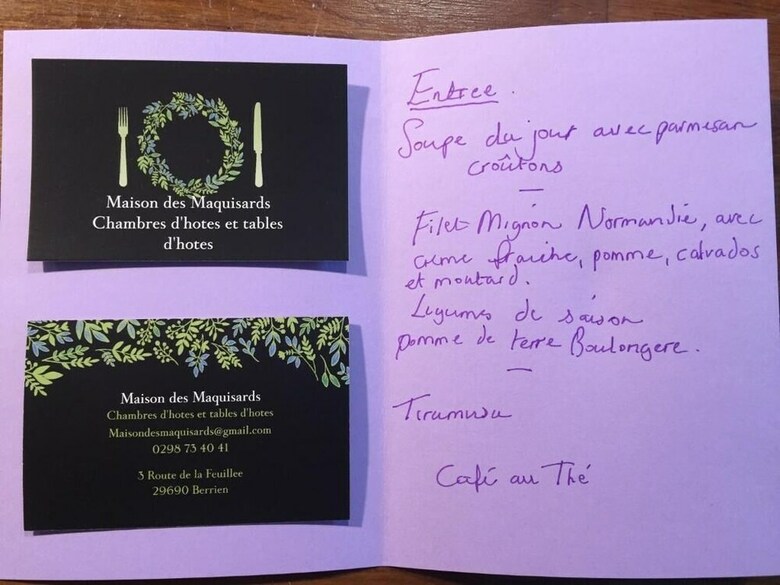 Maison des Maquisards
Chambres d'hotes et tables
d'hotes
Maison des Maquisards
Chambres d'hotes et tables d'hotes
Maisondesmaquisards@gmail.com
0298 73 40 41
3 Route de la Feuillee
29690 Berrien
Entree.
Soupe du jour avec parmesan
croûtons
Filet Mignon Normandie, avec
creme fraiche, pomme, calvados
et moutard.
Legumes de saison
pomme de terre Boulongere.
Tiramusu
Café au Thé